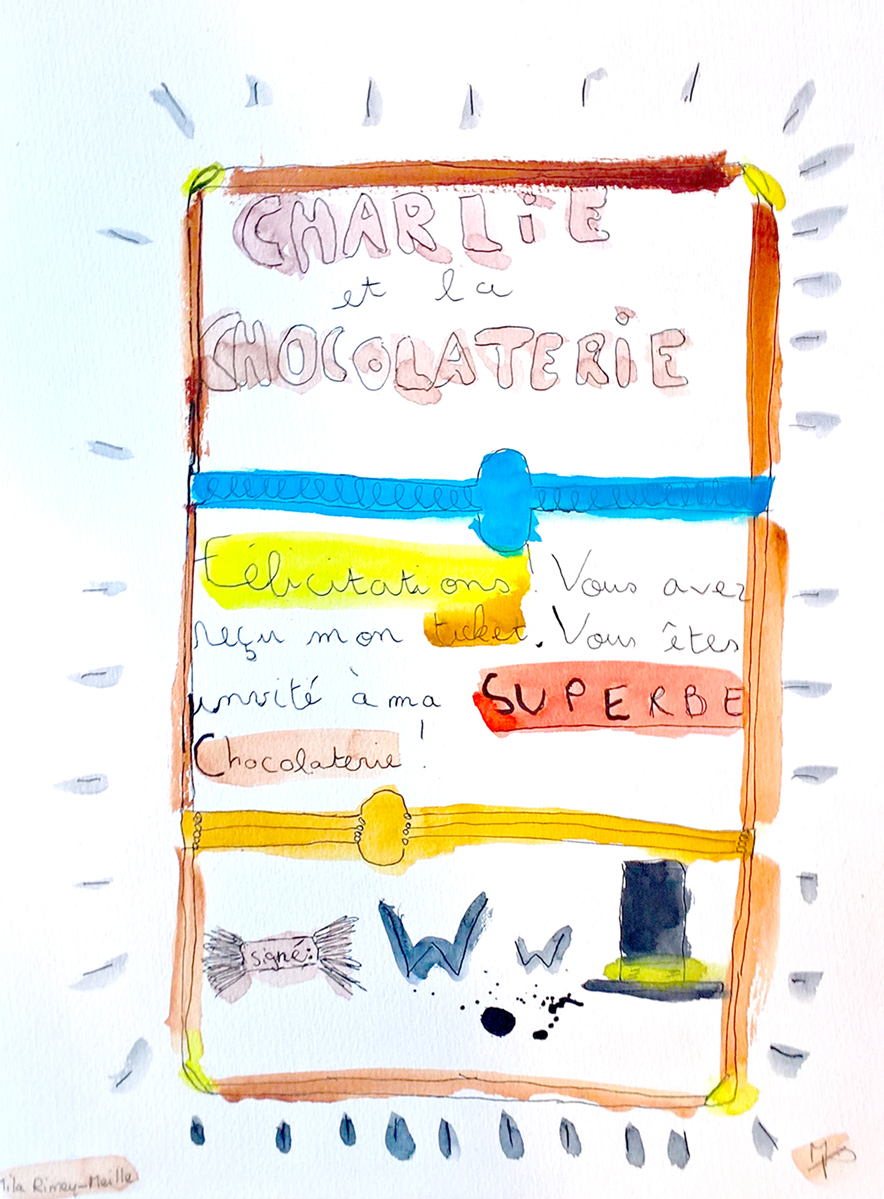 CHARLiE
et la
CHOCOLATERiE
Félicitations ! Vous avez
reçu mon ticket. Vous êtes
invité à ma SUPERBE
Chocolaterie !
signé: W W
Mila Rimey-Meille